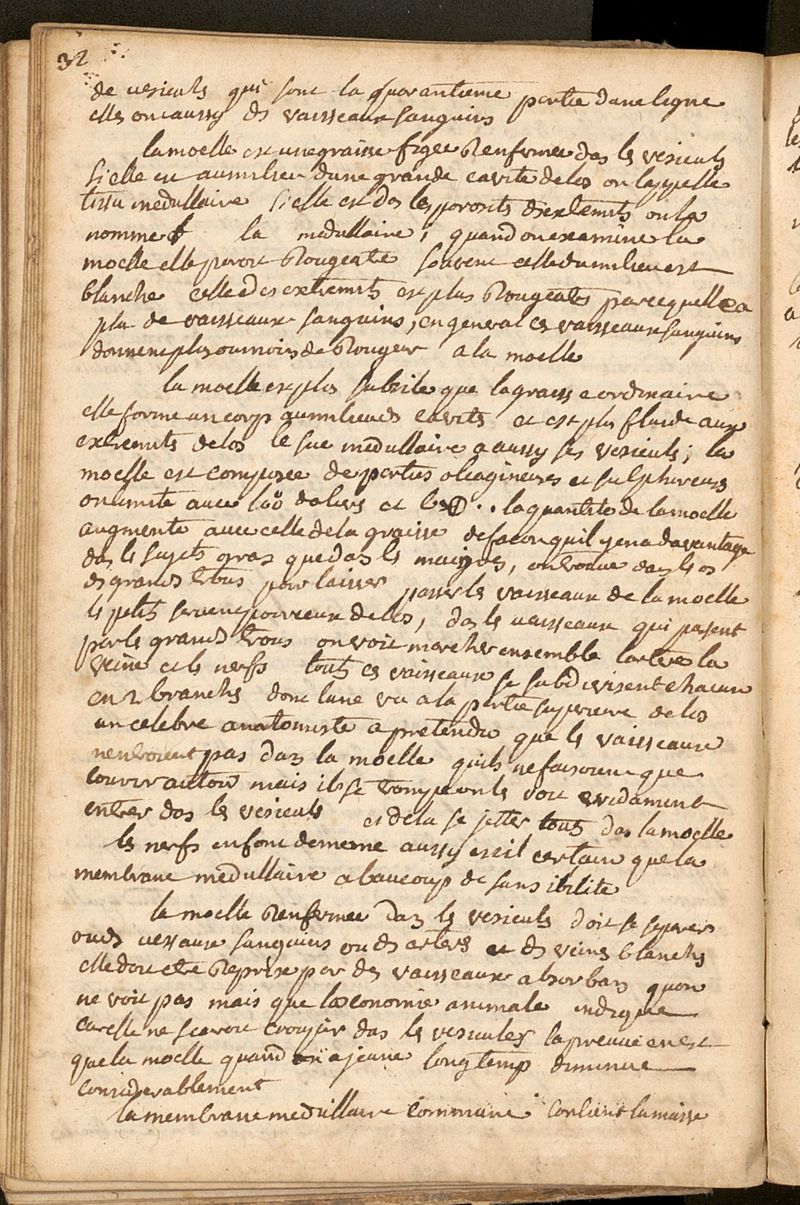 32
de vesiculs qui sont la quarantieme partie dune ligne
elles ont aussy ds vaisseaux sanguins
la moelle est une graisse figee Renfermee das ls vesiculs
si elle est au milieu dune grande cavite de los on lappelle
tissu medullaire si elle est das les porosits ds extremits on la
nomme la medullaire, quand on examine la
moelle elle paroit Rougeatre souvent celle du milieu est
blanche celle des extremits est plus Rougeatre parcequelle a
plus de vaisseaux sanguins, en general ces vaisseaux sanguins
donnent plus ou moins de Rougeur a la moelle
la moelle est plus subtile que la graisse ordinaire
elle forme un corps au milieu ds cavits et est plus fluide aux
extremits de los le suc medullaire a aussy ses vesiculs; la
moelle est composee de parties oleagineuses et sulphureuses
on limite avec dolives et la quantite de la moelle
augmente avec celle de la graisse de facon quil y en a davantage
das ls sujets gras que das ls maigres, on trouve das ls os
ds grands trous pour laisser passer ls vaisseaux de la moelle
ls petits servent de los, das ls vaisseaux qui passent
par ls grands trous on voit marcher ensemble lartere la
veine et ls nerfs touts ces vaisseaux se subdivisent chacun
en 2 branchs dont lune va a la partie superieure de los
un celebre anatomiste a pretendu que ls vaisseaux
nentroient pas dans la moelle quils ne faisoient que
courir autour mais il se trompe on ls voit evidament
entrer das ls vesiculs et de la se jetter touts das la moelle
ls nerfs en font de meme aussy est il certain que la
membrane medullaire a baucoup de sansibilite
la moelle Renfermee dans ls vesiculs doit se separer
ou ds vessaux sanguins ou ds arters et ds veins blanchs
elle doit etre Reprise par des vaisseaux absorbans quon
ne voit pas mais que loeconomie animale indique
car elle ne scavoit croupir das ls vesicules la preuve en est
que la moelle quand on a jeune longtemp diminue
considerablement
la membrane medullaire commune contient la masse